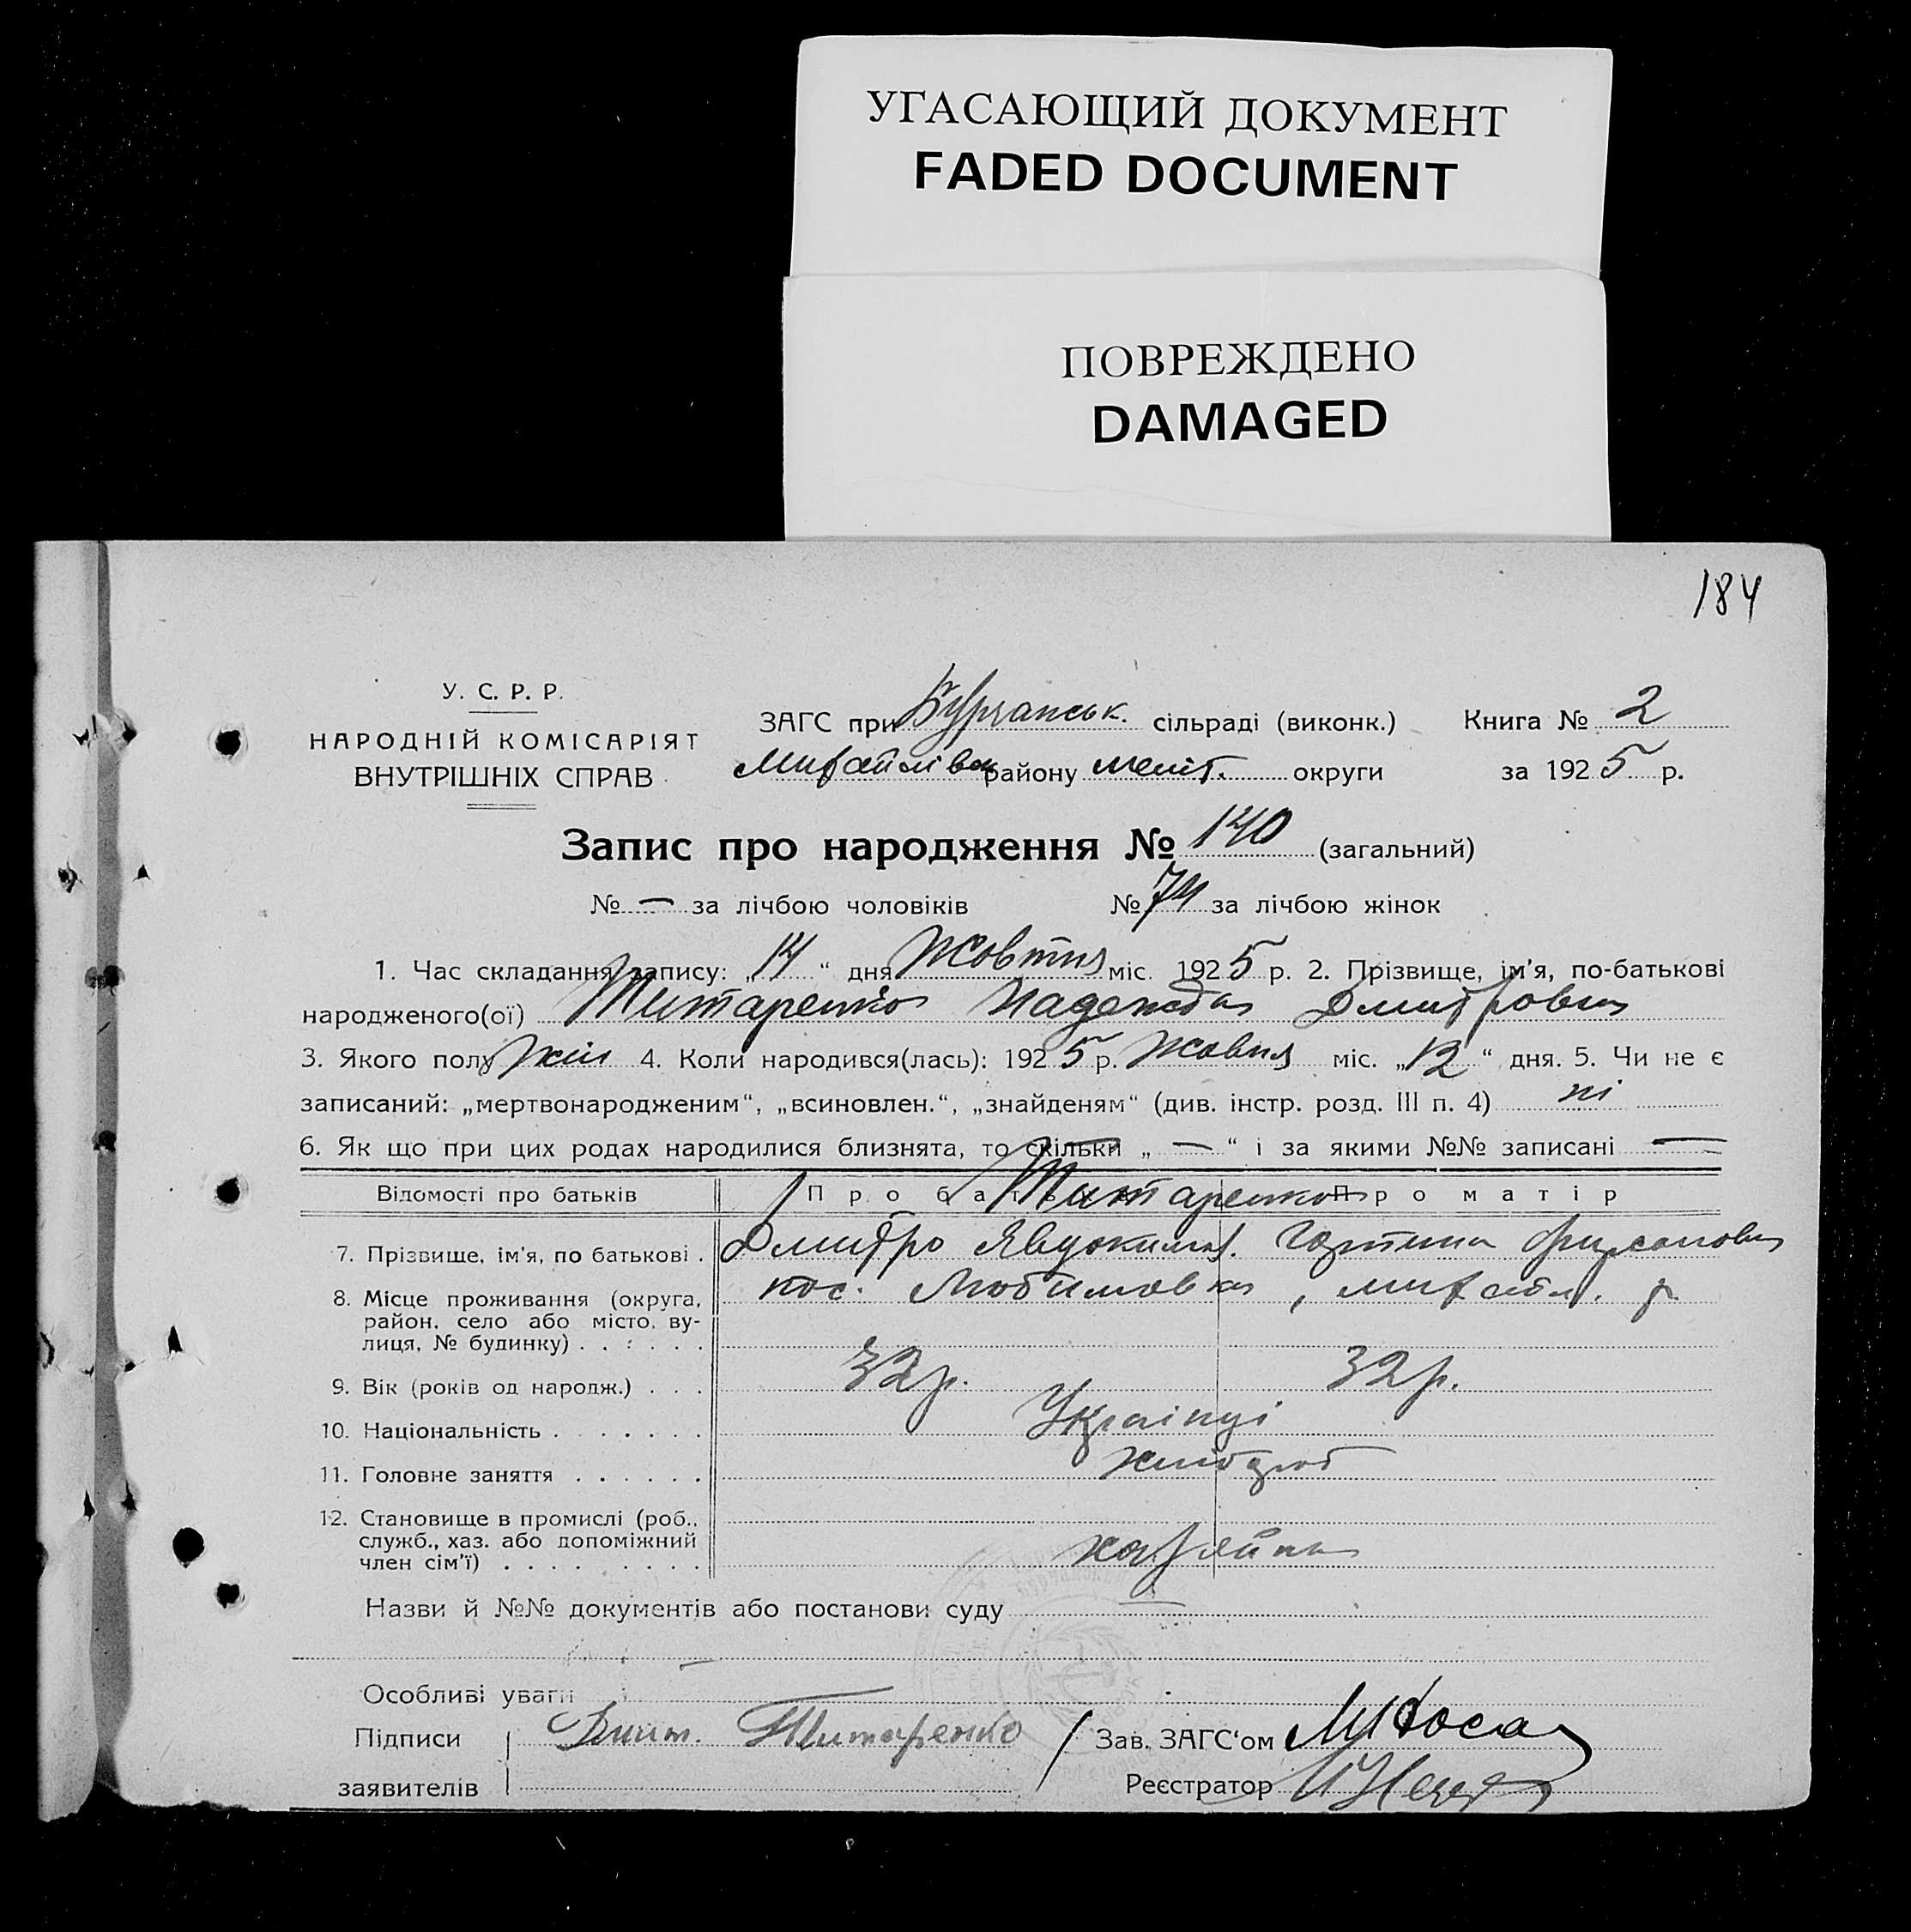 УГАСАЮЩИЙ ДОКУМЕНТ
FADED DOCUMENT
ПОВРЕЖДЕНО
DAMAGED
184
У. С. Р. Р.
НАРОДНІЙ КОМІСАРІЯТ
ВНУТРІШНІХ СПРАВ
ЗАГС при Бурчанськ. сільраді (виконк.) Книга № 2
Михайлівськ району меліт. округи за 1925 р.
Запис про народження № 140 (загальний)
№ — за лічбою чоловіків № 74 за лічбою жінок
1. Час складання запису: „14“ дня Жовтня міс. 1925 р. 2. Прізвище, ім'я, по-батькові
народженого(ої) Титаренко Надежда Дмитровна
3. Якого полу жін 4. Коли народився(лась): 1925 р. Жовтня міс. „12“ дня. 5. Чи не є
записаний: „мертвонародженим“, „всиновлен.“, „знайденям“ (див. інстр. розд. III п. 4) ні
6. Як що при цих родах народилися близнята, то скільки „ — “ і за якими №№ записані —
Відомості про батьків Про батька Титаренко Про матір
7. Прізвище, ім'я, по батькові . Дмитро Явдокимов.
8. Місце проживання (округа, пос. Любимовка, михайл. р.
район, село або місто, ву-
лиця, № будинку) . . . . . .
9. Вік (років од народж.) . . . 32 р. 32 р.
10. Національність . . . . . . . Українці
11. Головне заняття . . . . . . хлібороб
12. Становище в промислі (роб.,
служб., хаз. або допоміжний хазяїни
член сім'ї) . . . . . . . . .
Назви й №№ документів або постанови суду —
Особливі уваги —
Підписи Дмит. Титаренко Зав. ЗАГС'ом
заявителів Реєстратор